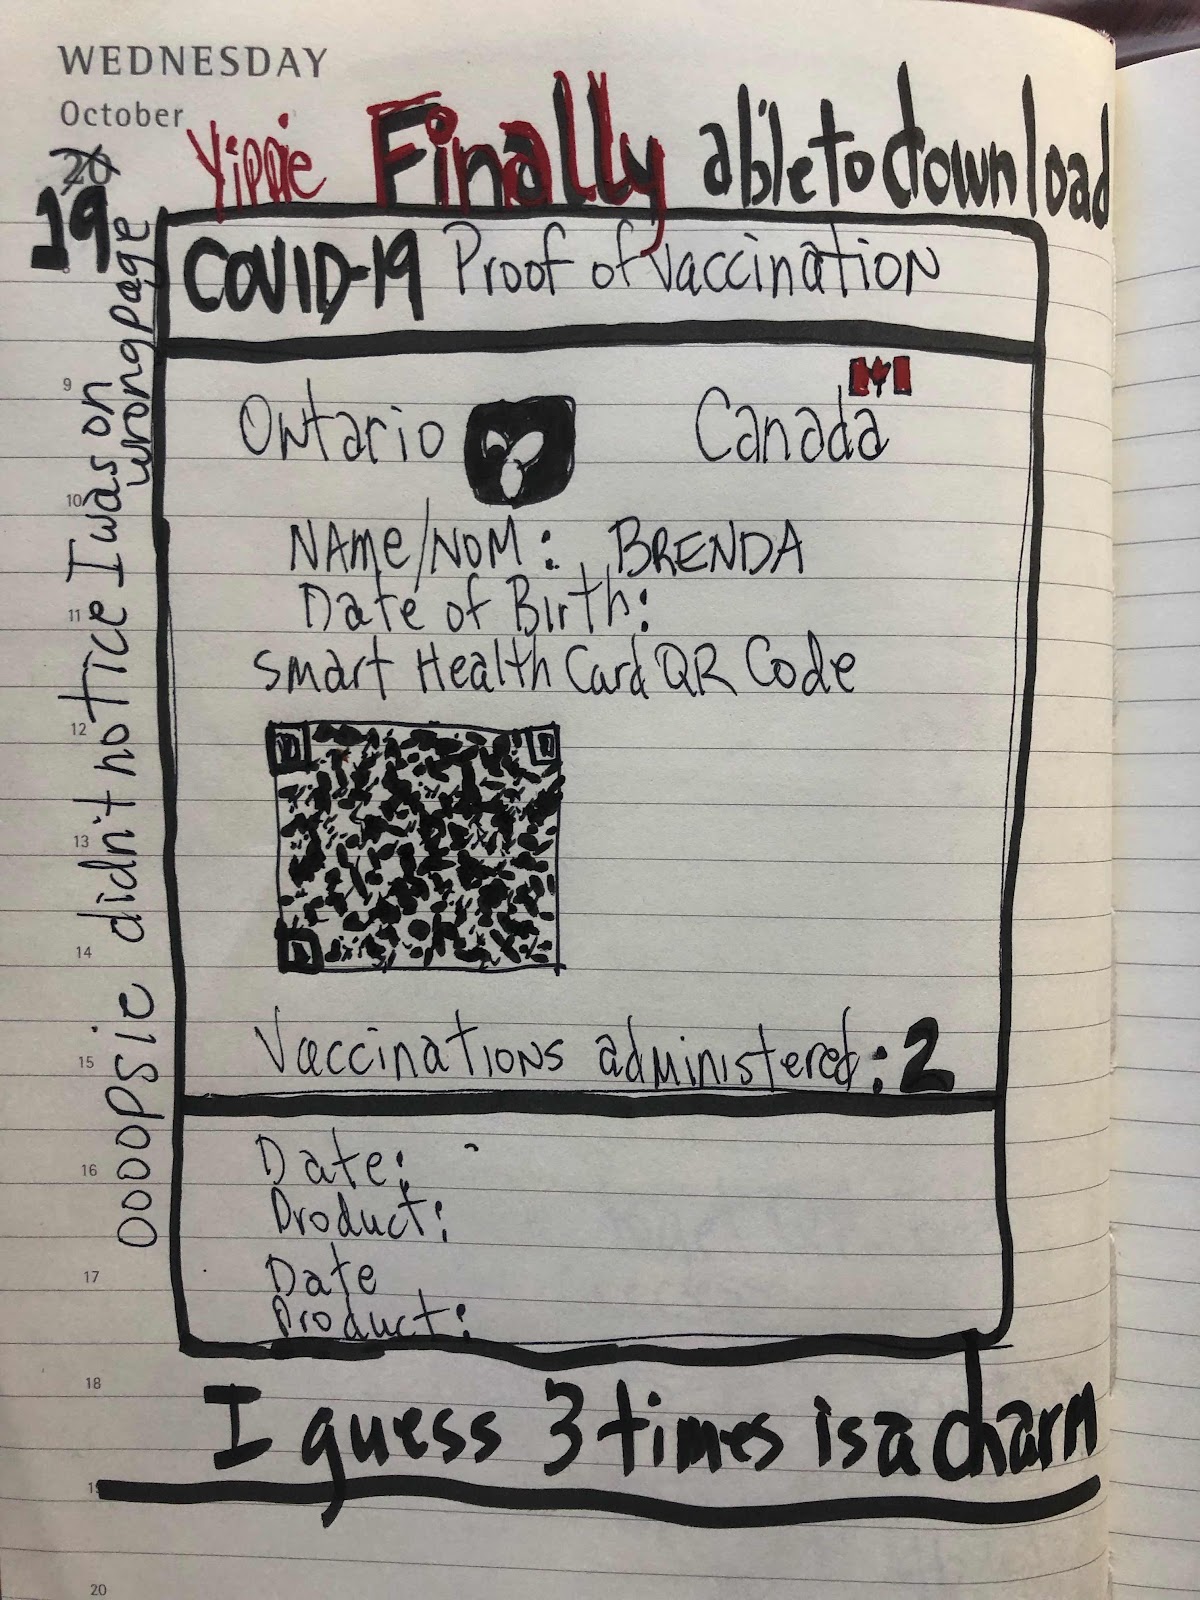 WEDNESDAY
October
20
19
Yippie Finally able to download
COVID-19 Proof of Vaccination
Ontario Canada
NAme/NOM: BRENDA
Date of Birth:
Smart Health Card QR Code
Vaccinations administered: 2
Date:
Product:
Date
Product:
I guess 3 times is a charm
oooopsie didn't notice I was on
wrong page
9
10
11
12
13
14
15
16
17
18
19
20